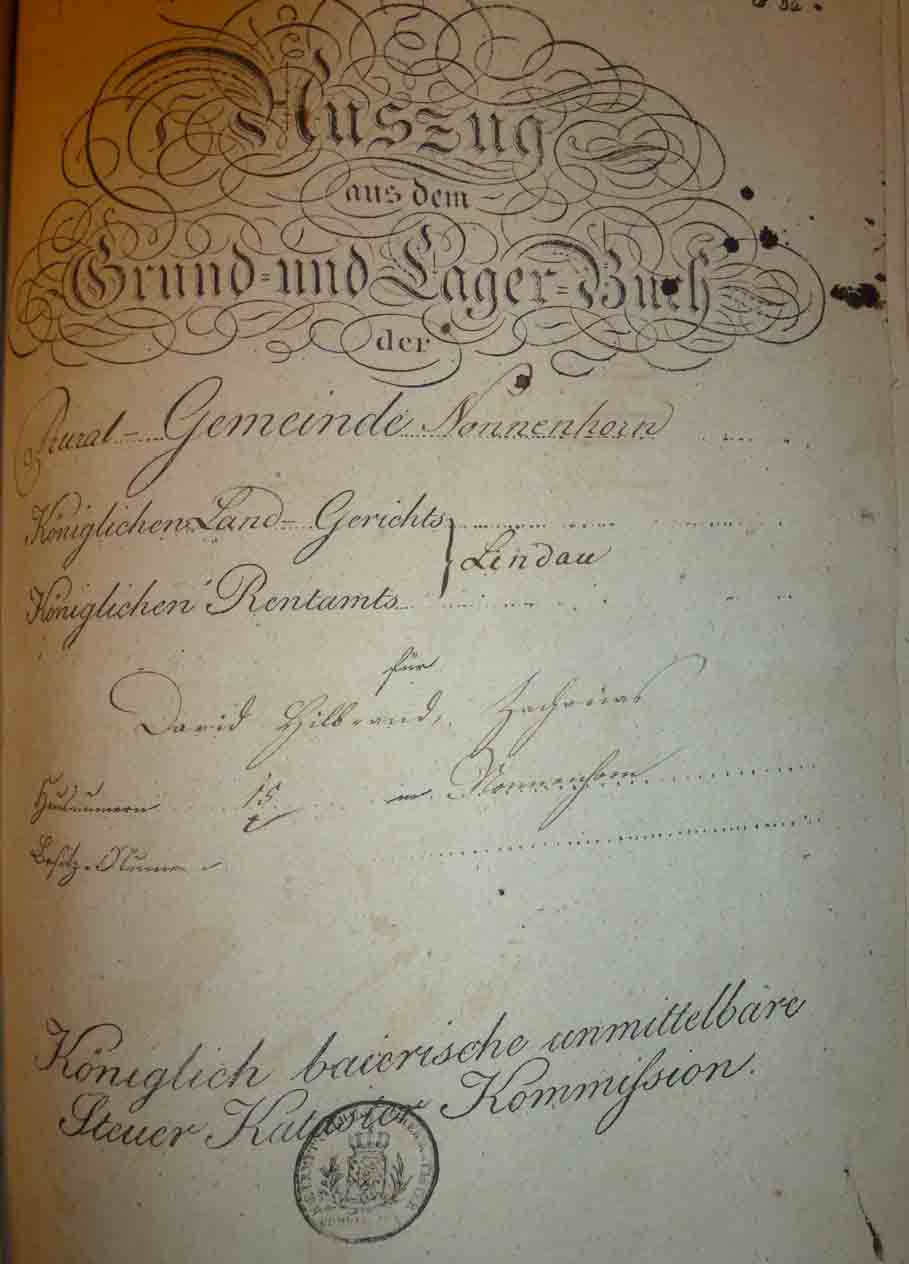 Auszug
aus dem
Grund- und Lager-Buch
der
Rural- Gemeinde Nonnenhorn
Königlichen Land- Gerichts
Lindau
Königlichen Rentamts
für
David Hilbrand, Zacharias
Hausnummern 15 in Nonnenhorn
Besitz-Numer
Königlich baierische unmittelbare
Steuer Kataster Kommißsion.